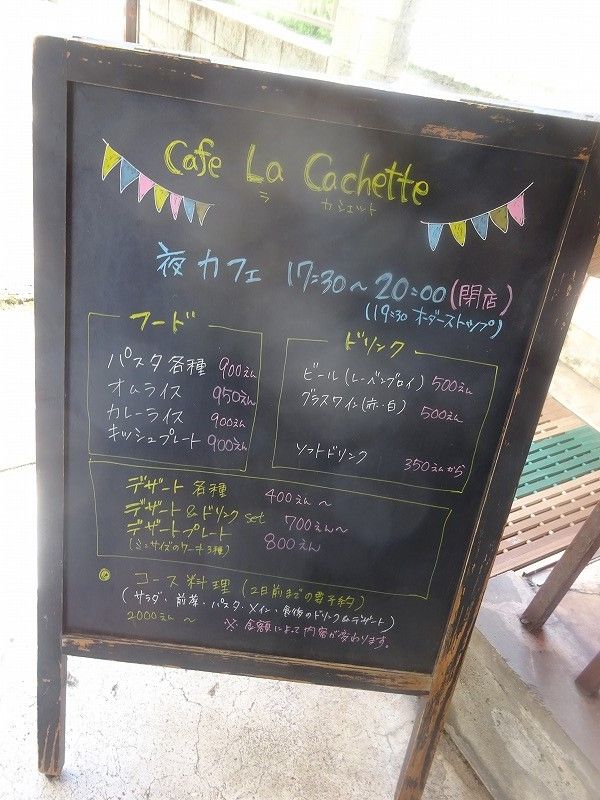 Cafe La Cachette
ラ カシェット
夜カフェ 17:30〜20:00(閉店)
(19:30 オーダーストップ)
フード
パスタ各種 900えん
オムライス 950えん
カレーライス 900えん
キッシュプレート 900えん
ドリンク
ビール(レーベンブロイ) 500えん
グラスワイン(赤・白) 500えん
ソフトドリンク 350えんから
デザート各種 400えん〜
デザート&ドリンクset 700えん〜
デザートプレート 800えん
(ミニサイズのケーキ3種)
コース料理(2日前までの要予約)
(サラダ・前菜・パスタ・メイン・食後のドリンク&デザート)
2000えん〜 ※金額によって内容が変わります。